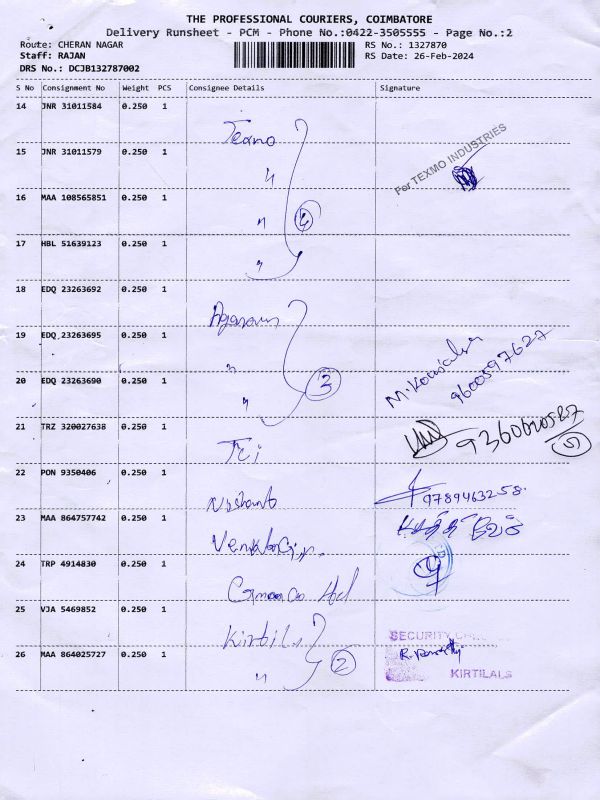 THE PROFESSIONAL COURIERS, COIMBATORE
Delivery Runsheet - PCM - Phone No.:0422-3505555 - Page No.:2
Route: CHERAN NAGAR RS No.: 1327870
Staff: RAJAN RS Date: 26-Feb-2024
DRS No.: DCJB132787002
S No Consignment No Weight PCS Consignee Details Signature
14 JNR 31011584 0.250 1
Texmo
For TEXMO INDUSTRIES
15 JNR 31011579 0.250 1
"
16 MAA 108565851 0.250 1
" 4
17 HBL 51639123 0.250 1
"
18 EDQ 23263692 0.250 1
19 EDQ 23263695 0.250 1
"
20 EDQ 23263690 0.250 1
" 3 9600597627
21 TRZ 320027638 0.250 1
22 PON 9350406 0.250 1
9789463258
23 MAA 864757742 0.250 1
24 TRP 4914830 0.250 1
25 VJA 5469852 0.250 1
SECURITY
26 MAA 864025727 0.250 1
" 2 KIRTILALS